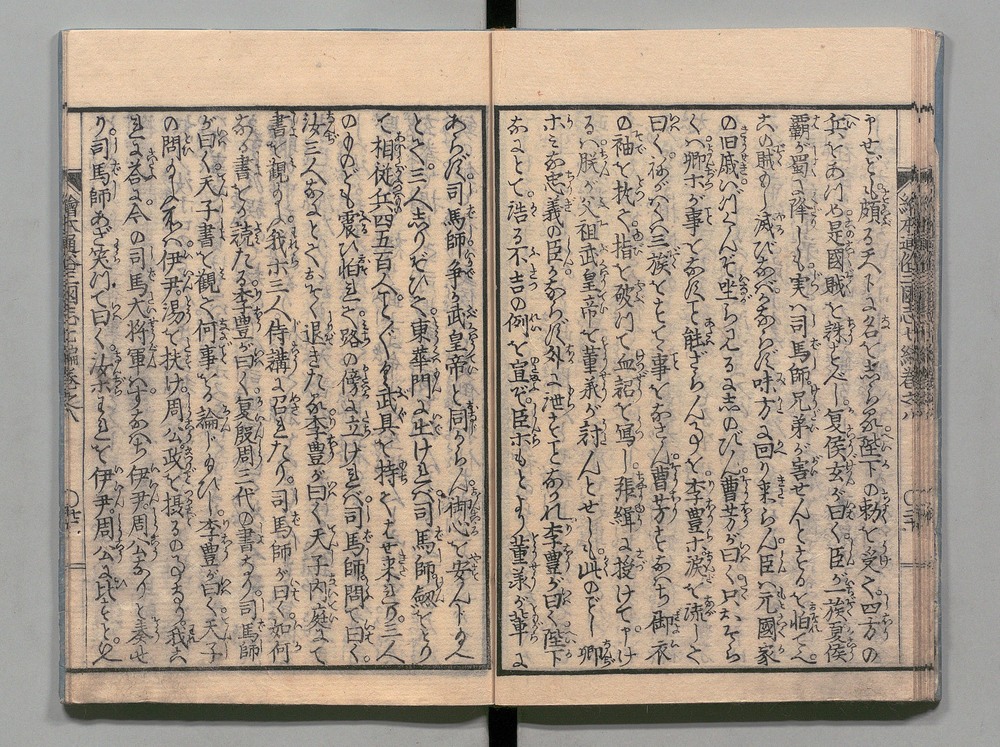 申せども頗る天下に名をしらる陛下の勅を受く四方の
兵をあつめ是國賊を誅すべし夏侯玄が曰く臣が一族夏侯
覇が蜀に降しも実ハ司馬師兄弟が害せんとするを怕てなり
此賊もし滅びなバかならず味方に回り来らん臣ハ元國家
の旧戚いかんぞ坐ら見るにしのびん曹芳が曰く只おそら
くハ卿ホが事をなすこと能ざらんことを李豊ホ涙を流して
曰く ハ三族をもて事をなさん曹芳すなハち御衣
の袖を扯く指を破つて血詔を写し張緝に授けて申け
るハ朕が父祖武皇帝も董承が討んとせし此のごとし卿
ホみな忠義の臣かならず外に泄ことなかれ李豊が曰く陛下
なにとて浩る不吉の例を宣ぞ臣ホもとより董承が輩に
あらず司馬師争か武皇帝と同からん御心を安んじ
とて三人しりぞひて東華門に出けれバ司馬師劔をとり
て相従兵四五百人こと〴〵く武具を持 来る三人
のものども震ひ怕れて路の傍に立けれバ司馬師問て曰く
汝三人なにとて 退きたる李豊が曰く天子内庭にて
書を観 我ホ三人侍講に召れたり司馬師が曰く如何
なる書をか読たる李豊が曰く夏殷周三代の書なり司馬師
が曰く天子書を観て何事をか論じ 李豊が曰く天子
の問 ハ伊尹湯を扶け周公政を摂るの なり我ホ
 答に今の司馬大将軍ハすなハち伊尹周公なりと奏せ
り司馬師あざ笑つて曰く汝ホ を伊尹周公に比すと
繪本通俗三國志七編巻之八
繪本通俗三國志七編巻之八